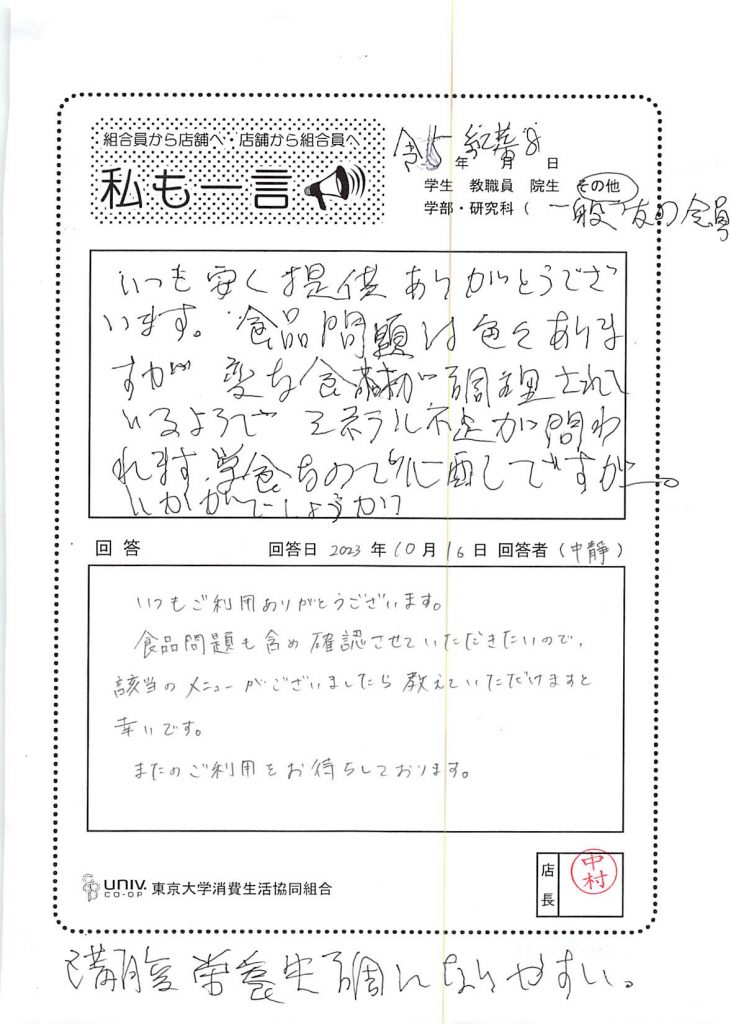 組合員から店舗へ・店舗から組合員へ
私も一言
令5年 月 日
学生 教職員 院生 その他
学部・研究科( 一般 友の会員
いつも安く提供ありがとうござ
います。食品問題は色々ありま
すが 変な食材が調理されて
いるようで ミネラル不足が問わ
れます 学食なので心配してですが。
いかがでしょうか?
回答 回答日 2023 年 10 月 16 日 回答者(中静)
いつもご利用ありがとうございます。
食品問題も含め確認させていただきたいので、
該当のメニューがございましたら教えていただけますと
幸いです。
またのご利用をお待ちしております。
UNIV. CO-OP 東京大学消費生活協同組合
店長 中村
満腹栄養失調になりやすい。